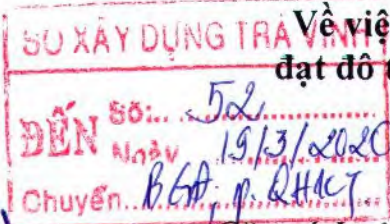 Về việ
SỞ XÂY DỰNG TRÀ VINH
đạt đô t
ĐẾN Số: 52
Ngày 19/3/2020
Chuyển: BGĐ; P. QHKT.